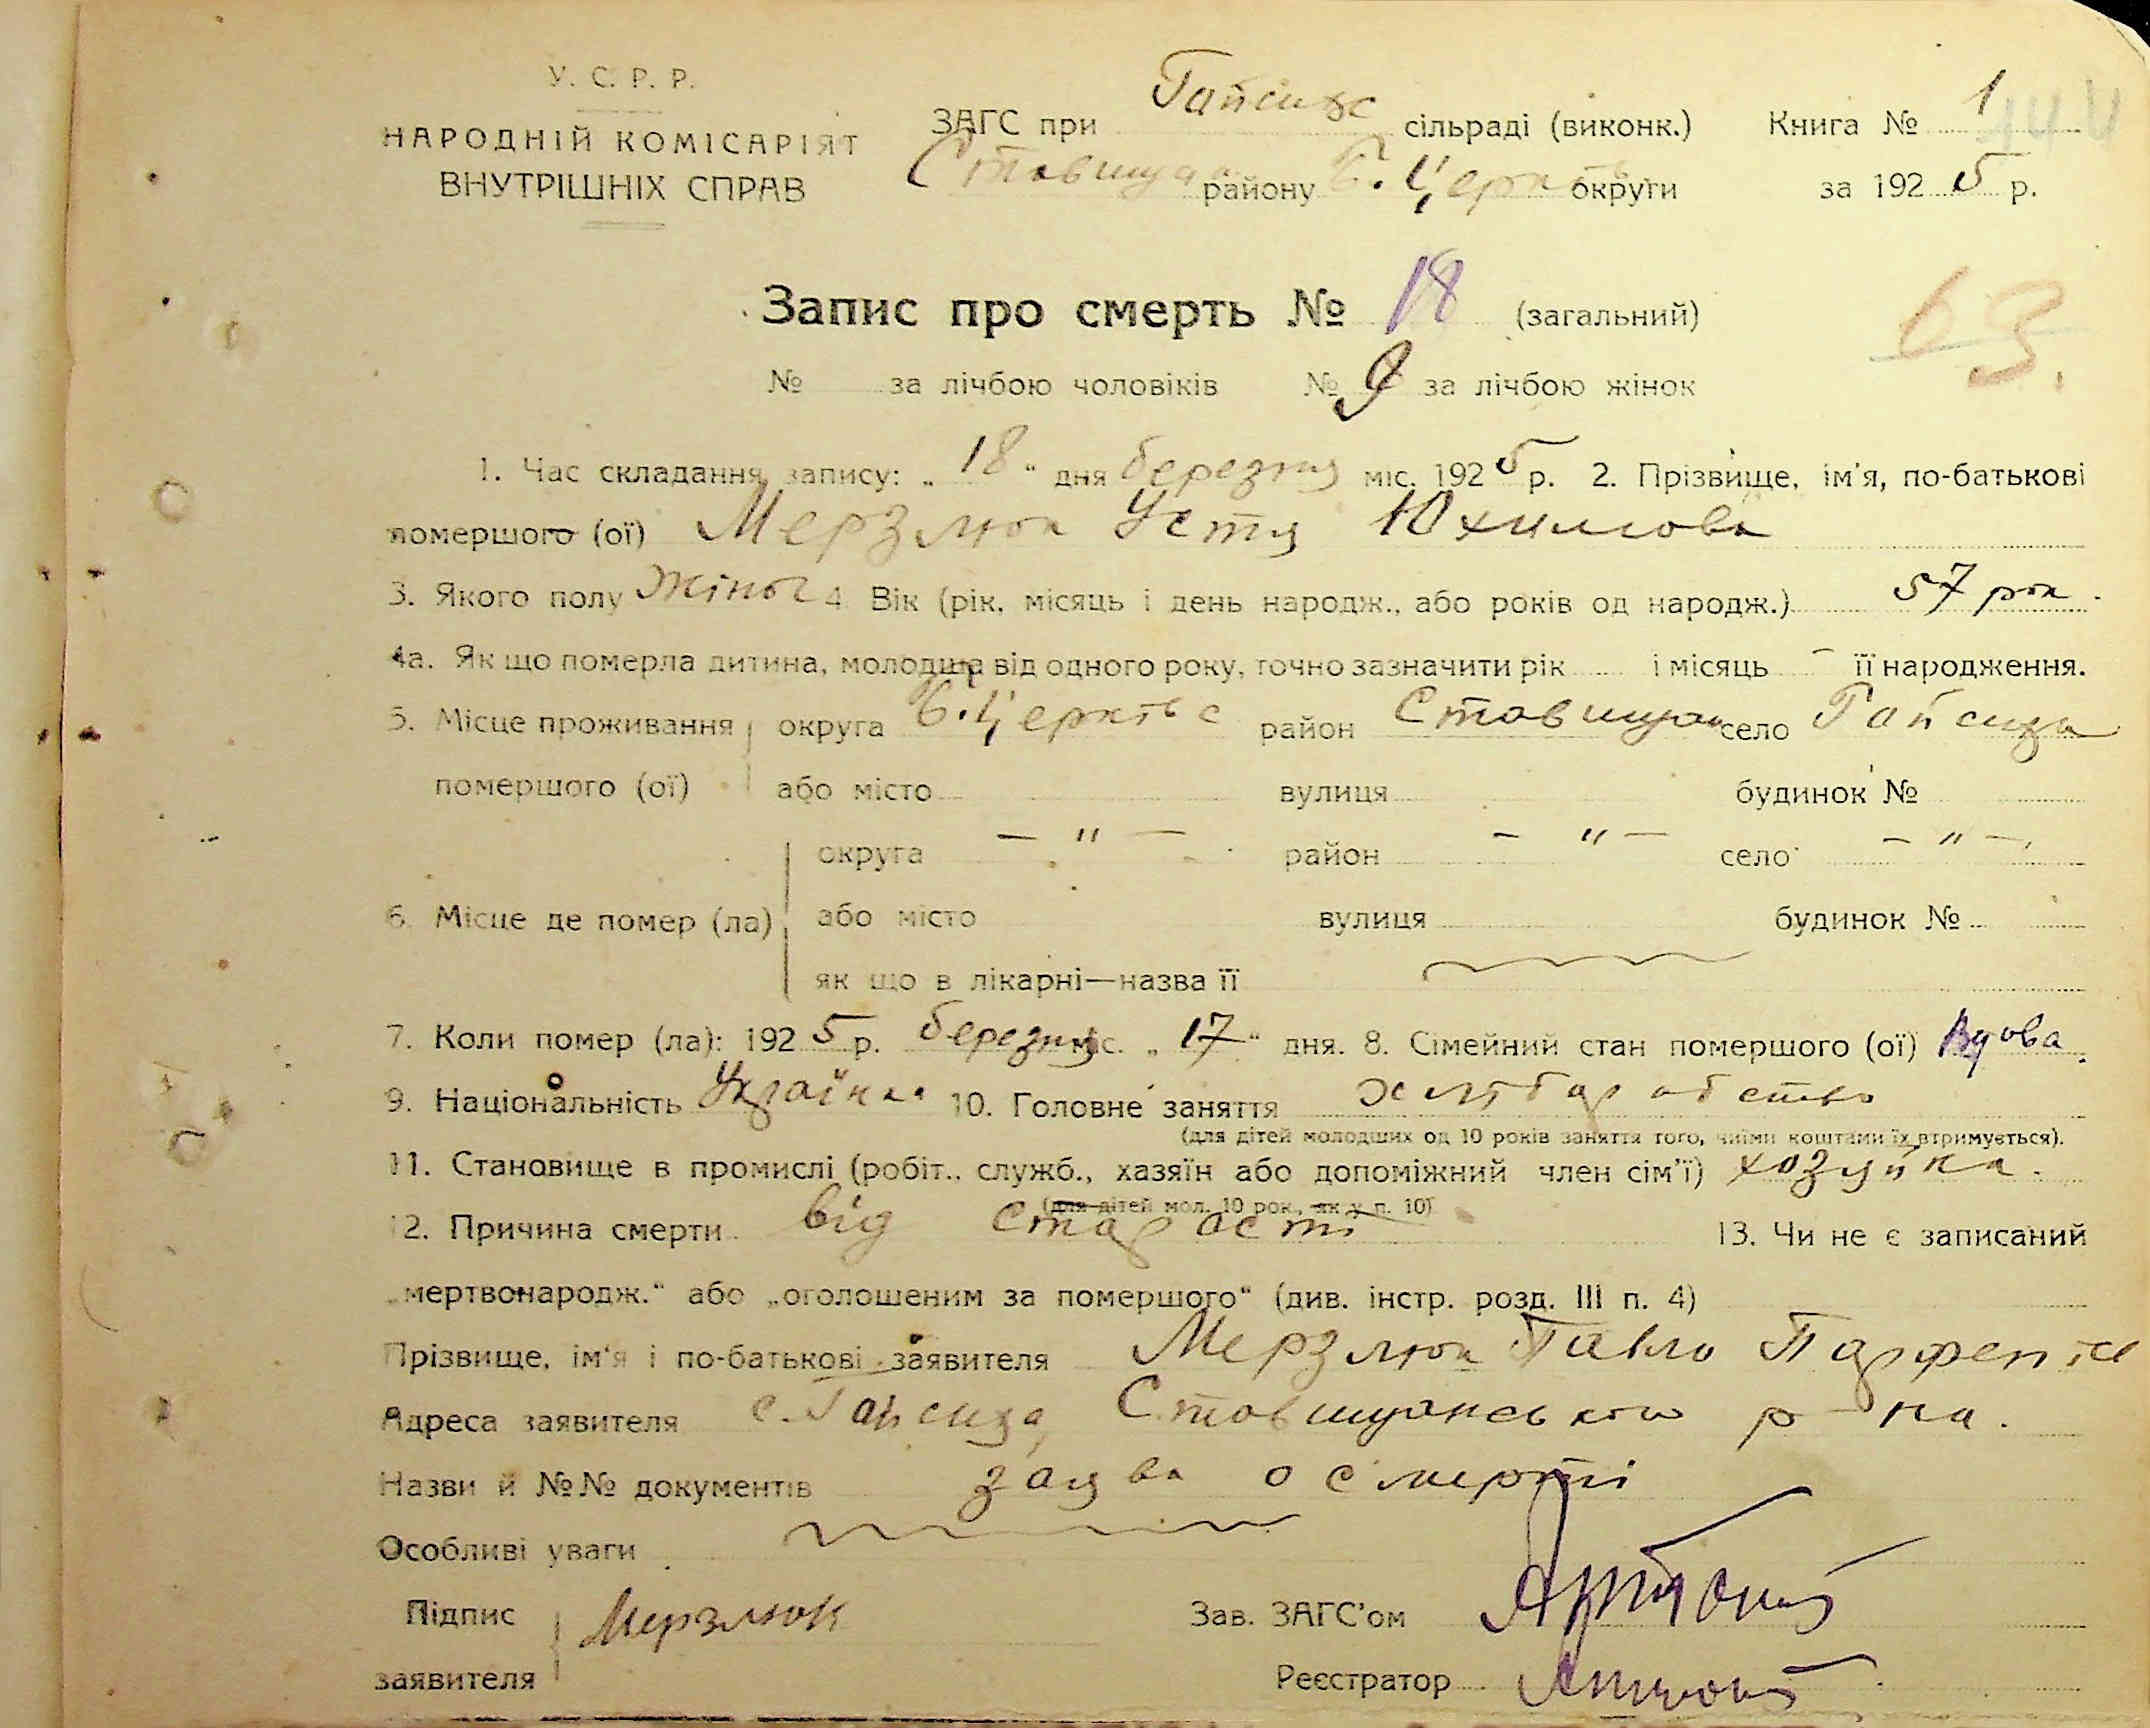 У. С. Р. Р.
НАРОДНІЙ КОМІСАРІЯТ
ВНУТРІШНІХ СПРАВ
ЗАГС при Гапсизс сільраді (виконк.) Книга № 1
Ставищан району Б. Церків округи за 1925 р.
63.
Запис про смерть № 18 (загальний)
№ за лічбою чоловіків № 9 за лічбою жінок
1. Час складання запису: „18“ дня березня міс. 1925 р. 2. Прізвище, ім'я, по-батькові
помершого (ої) Мерзлюк Устя Юхимова
3. Якого полу Жіноч 4 Вік (рік, місяць і день народж., або років од народж.) 57 рок.
4а. Як що померла дитина, молодша від одного року, точно зазначити рік і місяць – її народження.
5. Місце проживання округа Б. Церківс район Ставищан село Гапсиза
помершого (ої) або місто вулиця будинок №
округа — " — район — " — село — " —
6. Місце де помер (ла) або місто вулиця будинок №
як що в лікарні—назва її
7. Коли помер (ла): 1925 р. березня міс. „17“ дня. 8. Сімейний стан помершого (ої) Вдова.
9. Національність Українка 10. Головне заняття хліборобство
(для дітей молодших од 10 років заняття того, чиїми коштами їх втримується).
11. Становище в промислі (робіт., служб., хазяїн або допоміжний член сім'ї) хозяйка.
(для дітей мол. 10 рок., як у п. 10)
12. Причина смерти від старости 13. Чи не є записаний
„мертвонародж.“ або „оголошеним за помершого“ (див. інстр. розд. III п. 4)
Прізвище, ім'я і по-батькові заявителя Мерзлюк Павло Парфен
Адреса заявителя с. Гапсиза Ставищанського р-на.
Назви й №№ документів заява о смерті
Особливі уваги
Підпис заявителя Мерзлюк
Зав. ЗАГС'ом
Реєстратор